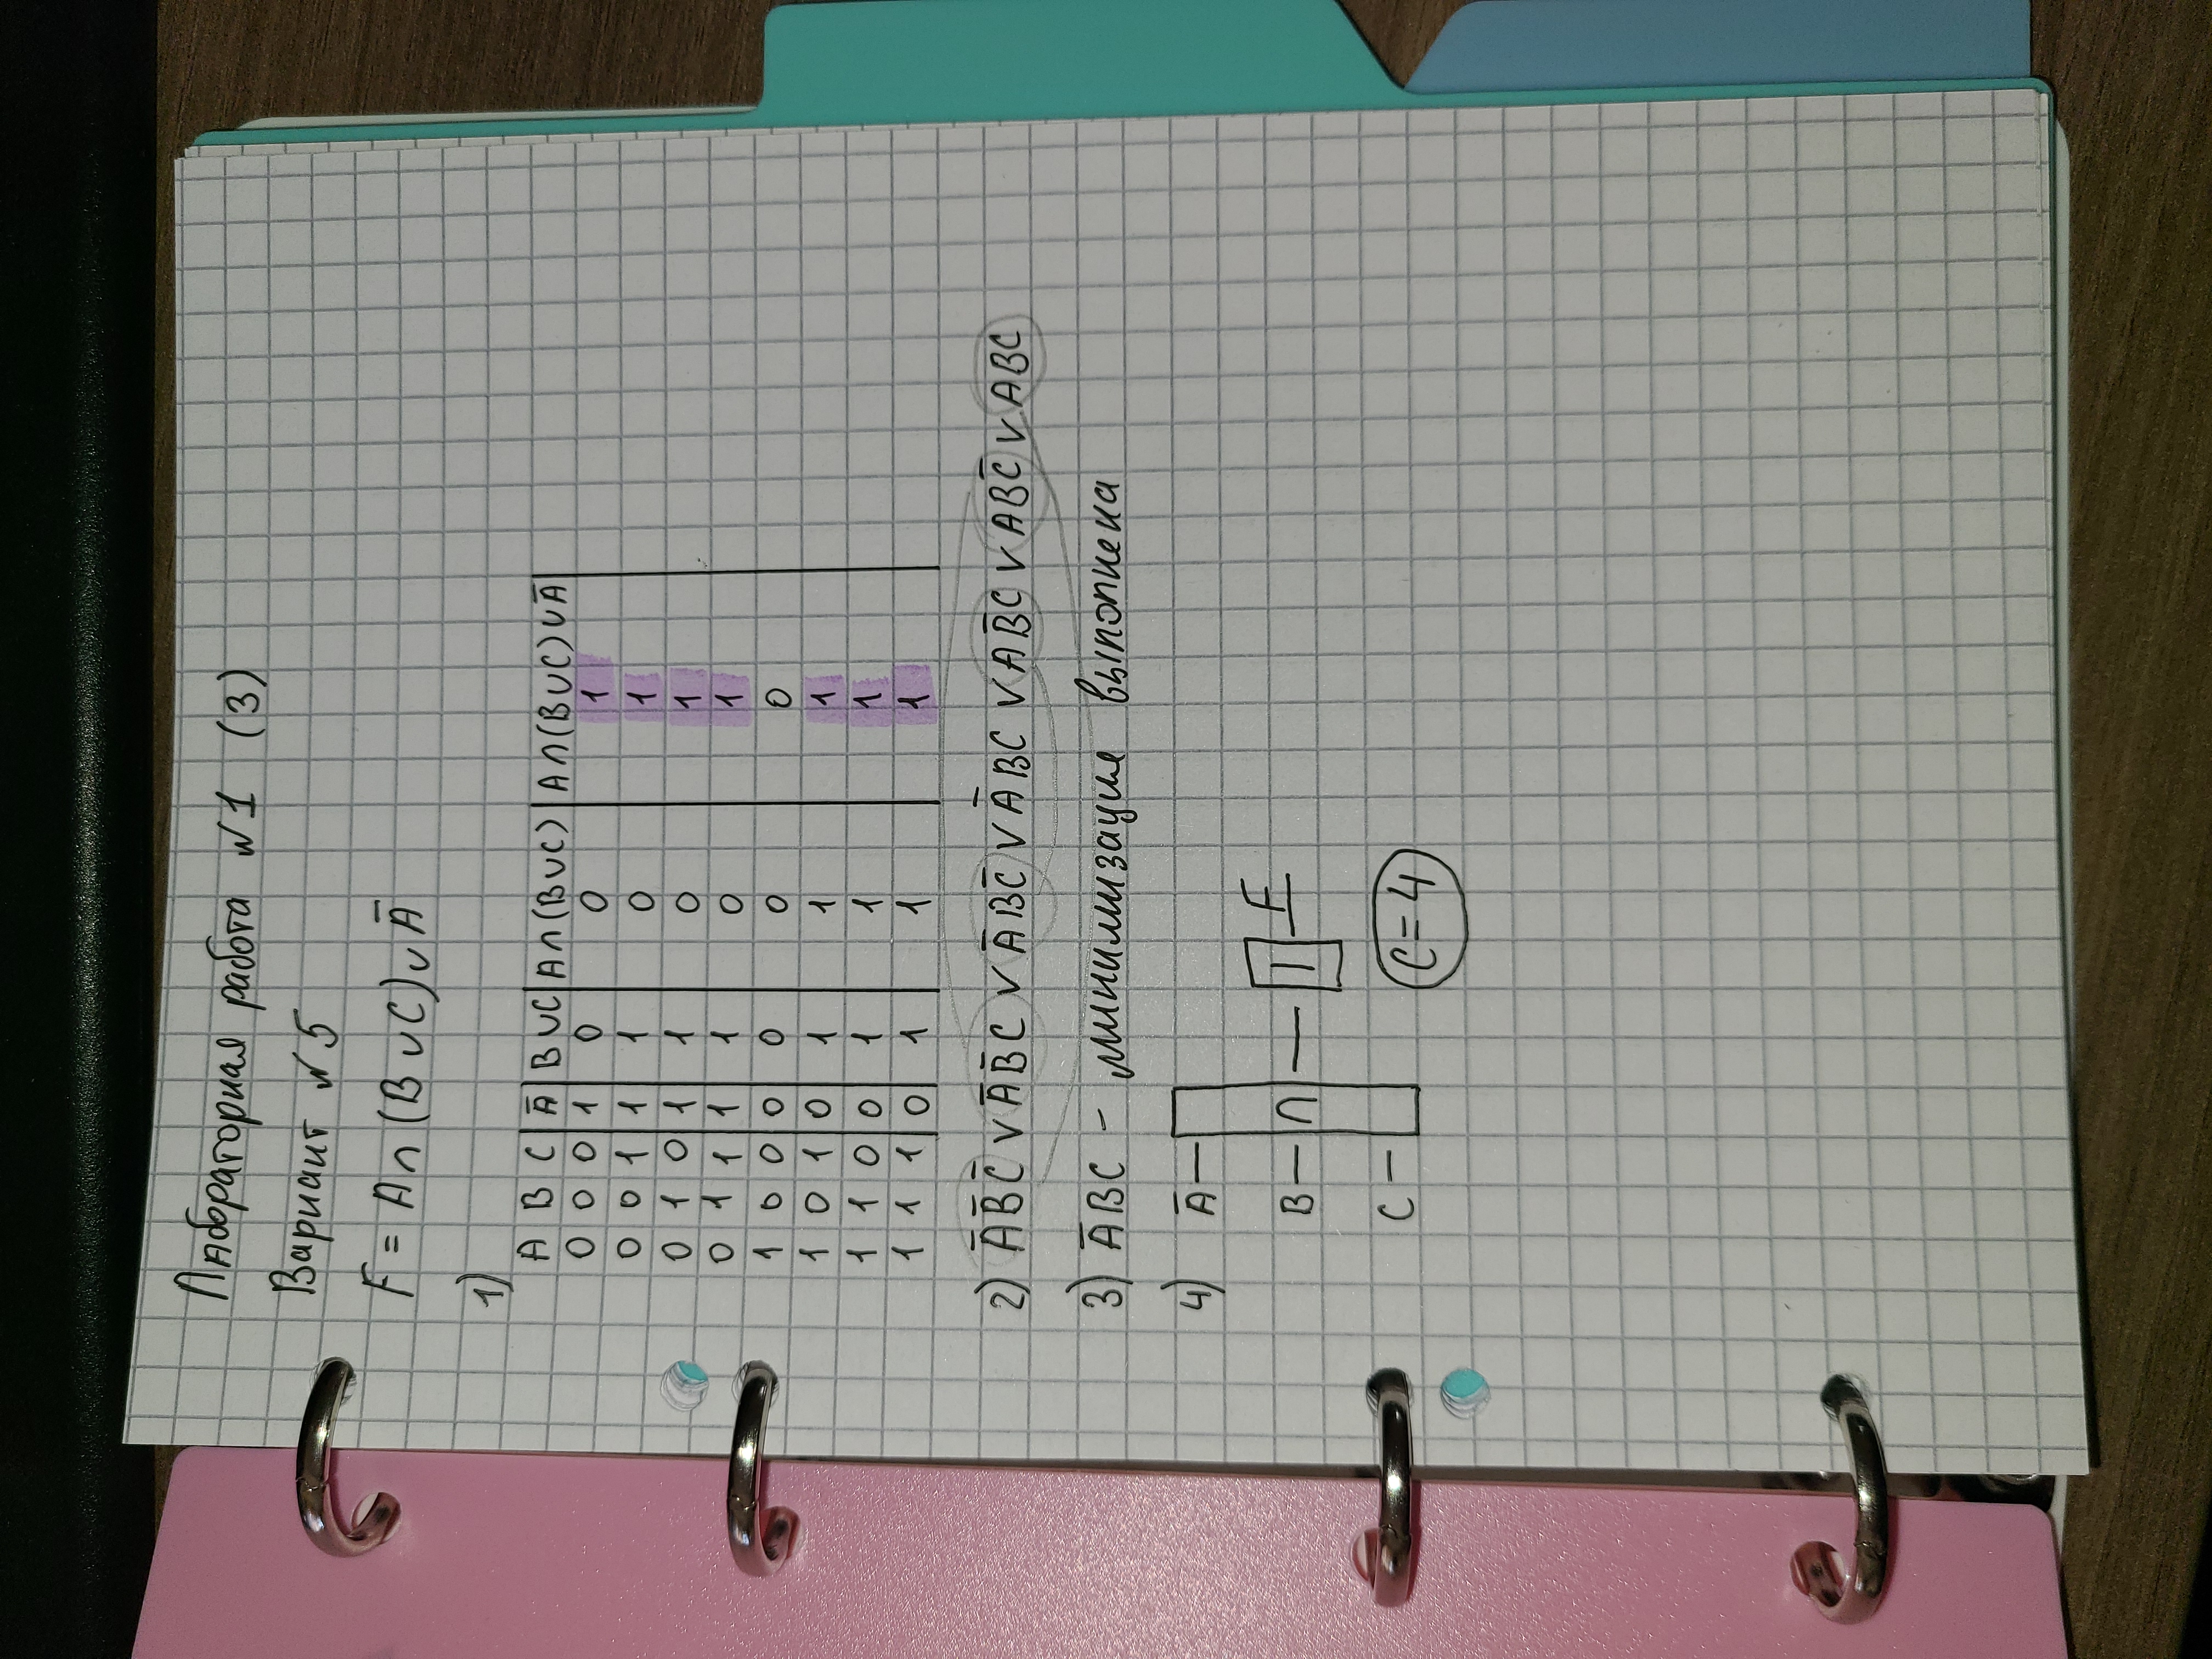 Лабораторная работа №1 (3)
Вариант №5
F = A∩(B∪C)∪A̅
1)
A B C A̅ B∪C A∩(B∪C) A∩(B∪C)∪A̅
0 0 0 1 0 0 1
0 0 1 1 1 0 1
0 1 0 1 1 0 1
0 1 1 1 1 0 1
1 0 0 0 0 0 0
1 0 1 0 1 1 1
1 1 0 0 1 1 1
1 1 1 0 1 1 1
2) A̅B̅C̅ ∨ A̅B̅C ∨ A̅BC̅ ∨ A̅BC ∨ AB̅C ∨ ABC̅ ∨ ABC
3) A̅BC - минимизация выполнена
4) A̅
B ∩ 1 F
C
C=4